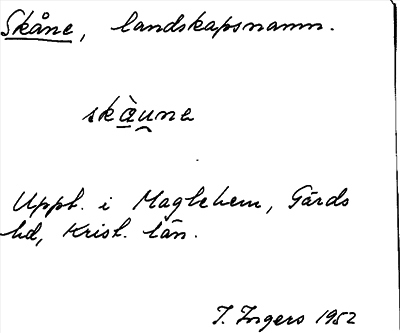 Skåne, landskapsnamn.
skàu̯ne
Uppt. i Maglehem, Gärds
hd, Krist. län.
I. Ingers 1952